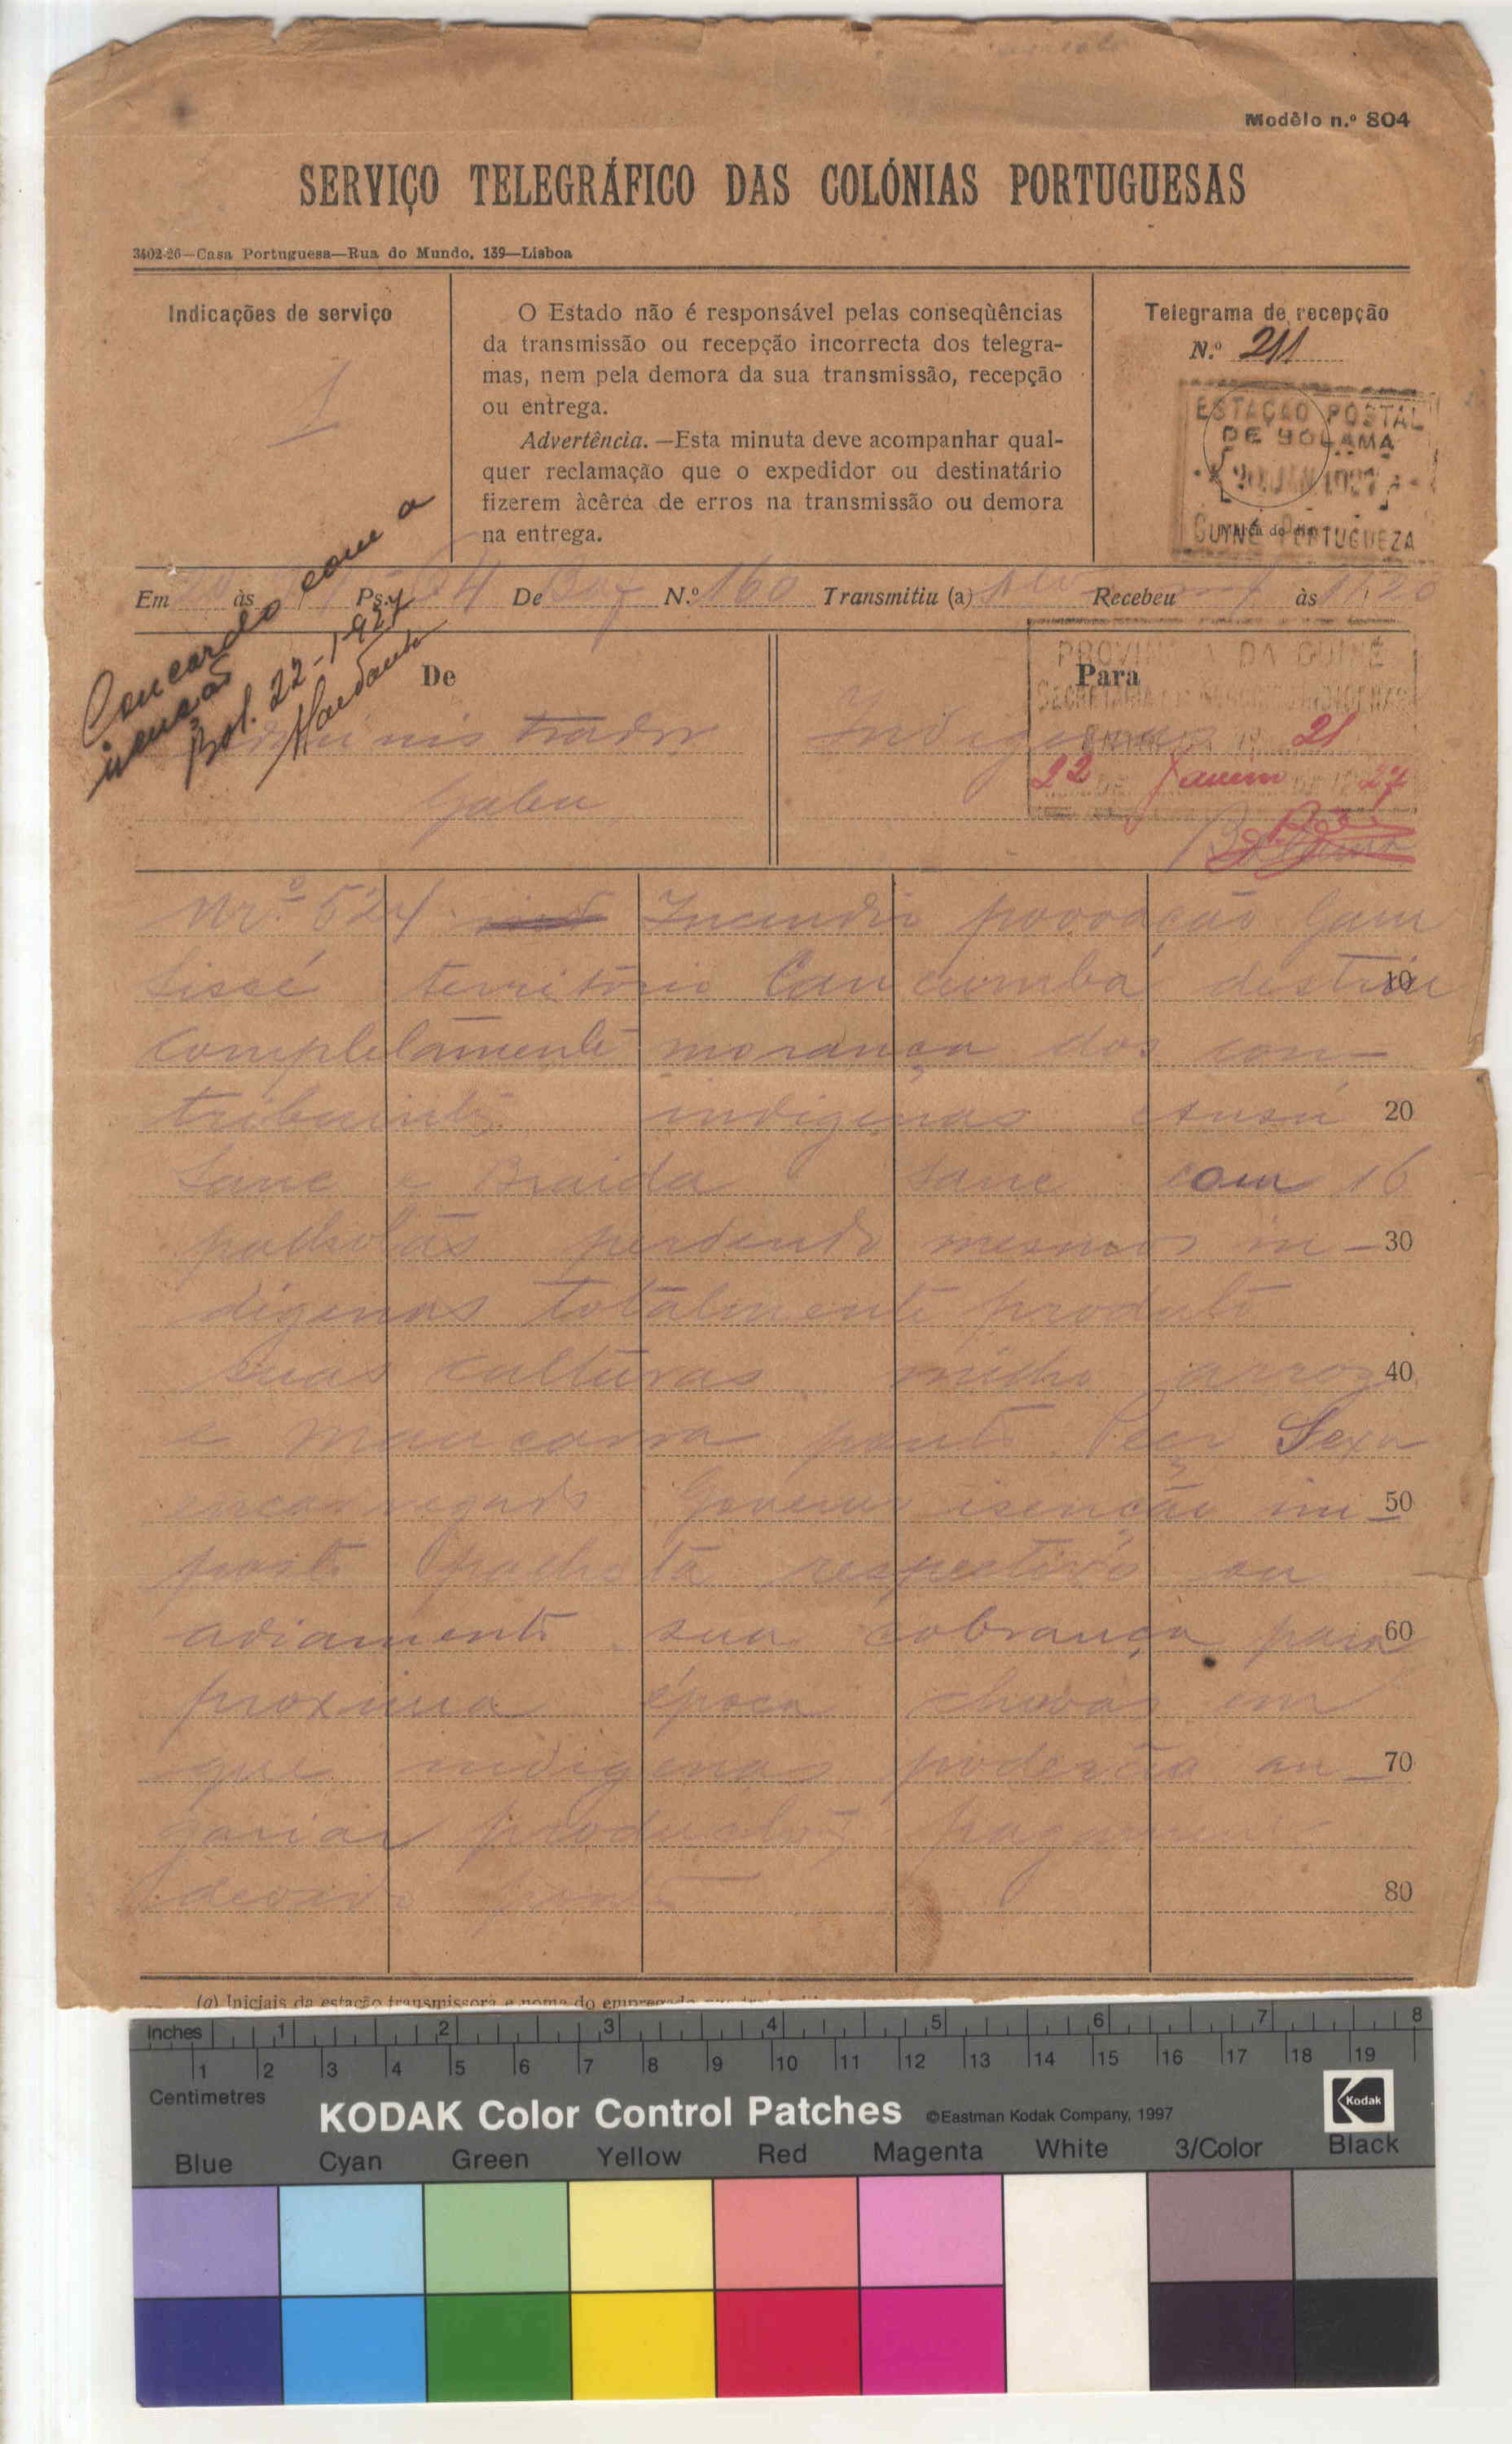 Modêlo n.º 804
SERVIÇO TELEGRÁFICO DAS COLÓNIAS PORTUGUESAS
3402-26—Casa Portuguesa—Rua do Mundo, 139—Lisboa
Indicações de serviço
1
O Estado não é responsável pelas conseqüências
da transmissão ou recepção incorrecta dos telegra-
mas, nem pela demora da sua transmissão, recepção
ou entrega.
Advertência.—Esta minuta deve acompanhar qual-
quer reclamação que o expedidor ou destinatário
fizerem àcêrca de erros na transmissão ou demora
na entrega.
Telegrama de recepção
N.º 211
ESTAÇÃO POSTAL
DE BOLAMA
20 JAN 1927
GUINÉ PORTUGUEZA
Em 20 às Ps. 84 De Baf N.º 160 Transmitiu (a) Recebeu às 11,20
Concardo com a
isenção
Bol. 22-1-927
De
Administrador
Gabu
Para
Indigenas
Bolama
PROVINCIA DA GUINÉ
SECRETARIA DOS NEGOCIOS INDIGENAS
ENTRADA N.º 21
22 DE Janeiro DE 1927
Nr.º 524 Incendio povoação Gam
Sissé território Cancumba destruiu 10
completamente morança dos con-
tribuintes indigenas 20
Sane e Braida Sane com 16
palhotas perdendo mesmos in- 30
digenas totalmente produto
suas culturas milho arroz 40
e mancarra ponto Peço Sexa
encarregado Governo isenção im- 50
posto palhota respectivo ou
adiamento sua cobrança para 60
proxima época chuvas em
que indigenas poderão an- 70
gariar produtos pagamento
devido ponto 80
(a) Iniciais da estação transmissora e nome do empregado
Inches 1 2 3 4 5 6 7 8
1 2 3 4 5 6 7 8 9 10 11 12 13 14 15 16 17 18 19
Centimetres
KODAK Color Control Patches ©Eastman Kodak Company, 1997 Kodak
Blue Cyan Green Yellow Red Magenta White 3/Color Black